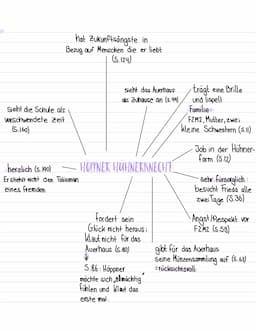 Hat Zukunftsängste in
Bezug auf Menschen die er liebt
(S.129)
sieht das Auerhaus
als Zuhause an (S.99)
trägt eine Brille
und Lispelt
Familie:
F2M2, Mutter, zwei
kleine Schwestern (S.11)
sieht die Schule als
verschwendete Zeit
(S.160)
Job in der Hühner-
farm (S.12)
herzlich (S.190)
Er steht nicht den Talisman
eines fremden.
HÖPPNER HÜHNERKNECHT
sehr fürsorglich:
besucht Frieda alle
zwei Tage (S.36)
Angst/Respekt vor
F2M2 (S.58)
Fordert sein
Glück nicht heraus:
klaut nicht für das
Auerhaus (S.68)
S.86: Höppner
möchte sich allmächtig
fühlen und klaut das
erste mal.
gibt für das Auerhaus
seine Münzensammlung auf (S.68)
→rücksichtsvoll